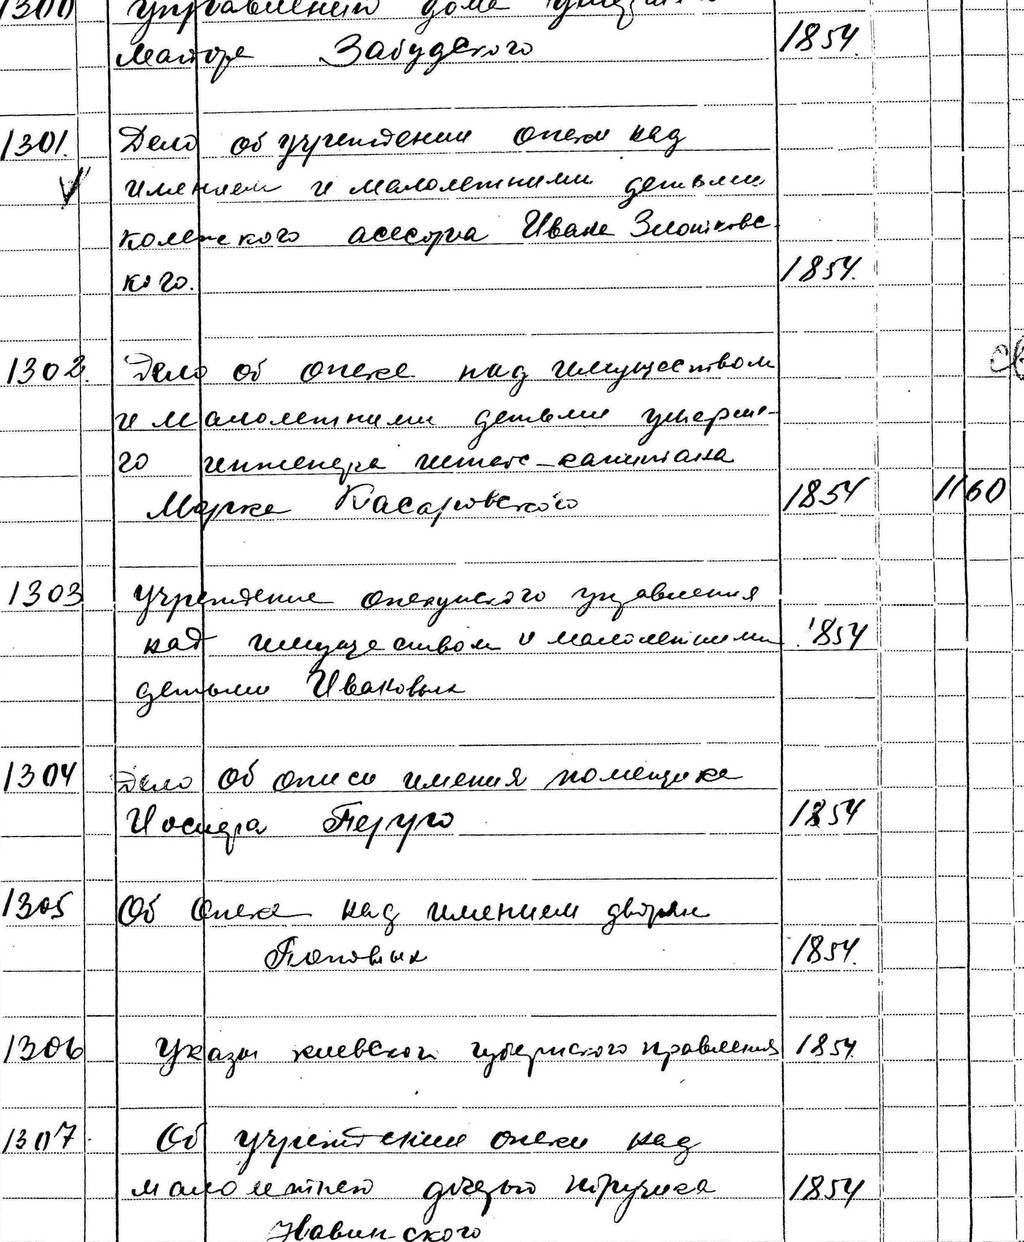 1300 управлении доме
Майора Забудского 1854.
1301. Дело об учреждении опеки над
имением и малолетними детьми
колежского асесора Ивана Злотковс-
кого. 1854.
1302. Дело об опеке над имуществом
и малолетними детьми умерше-
го инженера штабс-капитана
Марка Касаровского 1854 1160
1303 Учреждение опекунского управления
над имуществом и малолетними 1854
детьми Иваковых
1304 Дело об описи имения помещика
Иосифа Перуго 1854
1305 Об опеке над имением дворян
Поповых 1854.
1306 Указы киевского губернского правления 1854.
1307. Об учреждении опеки над
малолетней дочерью поручика 1854